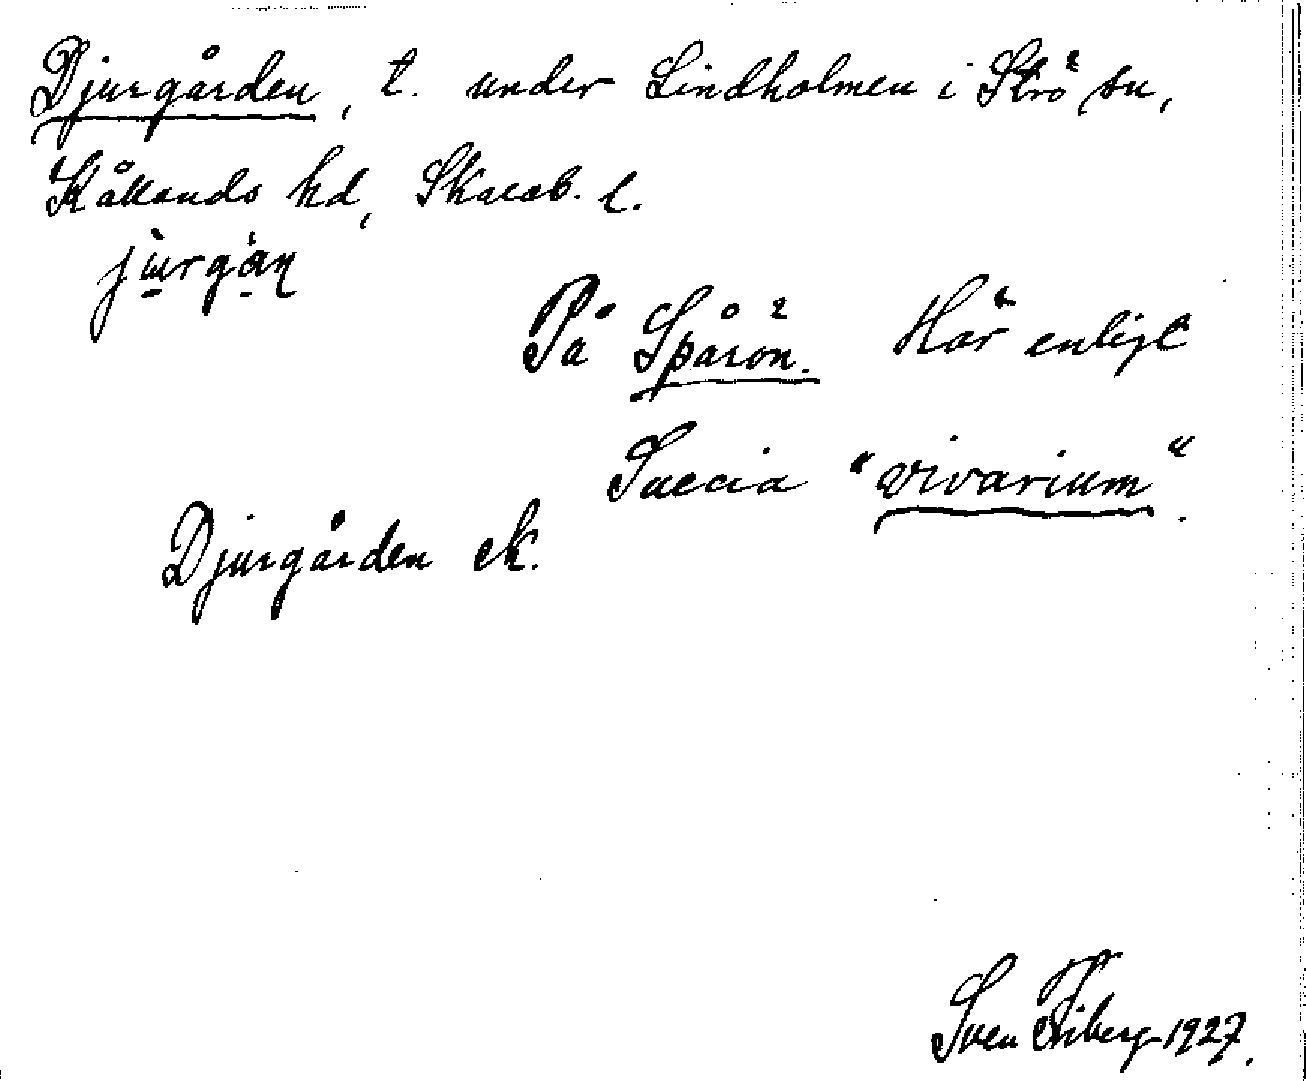 Djurgården, t. under Lindholmen i Strö sn,
Kållands hd, Skarab. l.
På Spårön. Här enligt
Suecia "vivarium".
Djurgården ek.
Sven 1927.